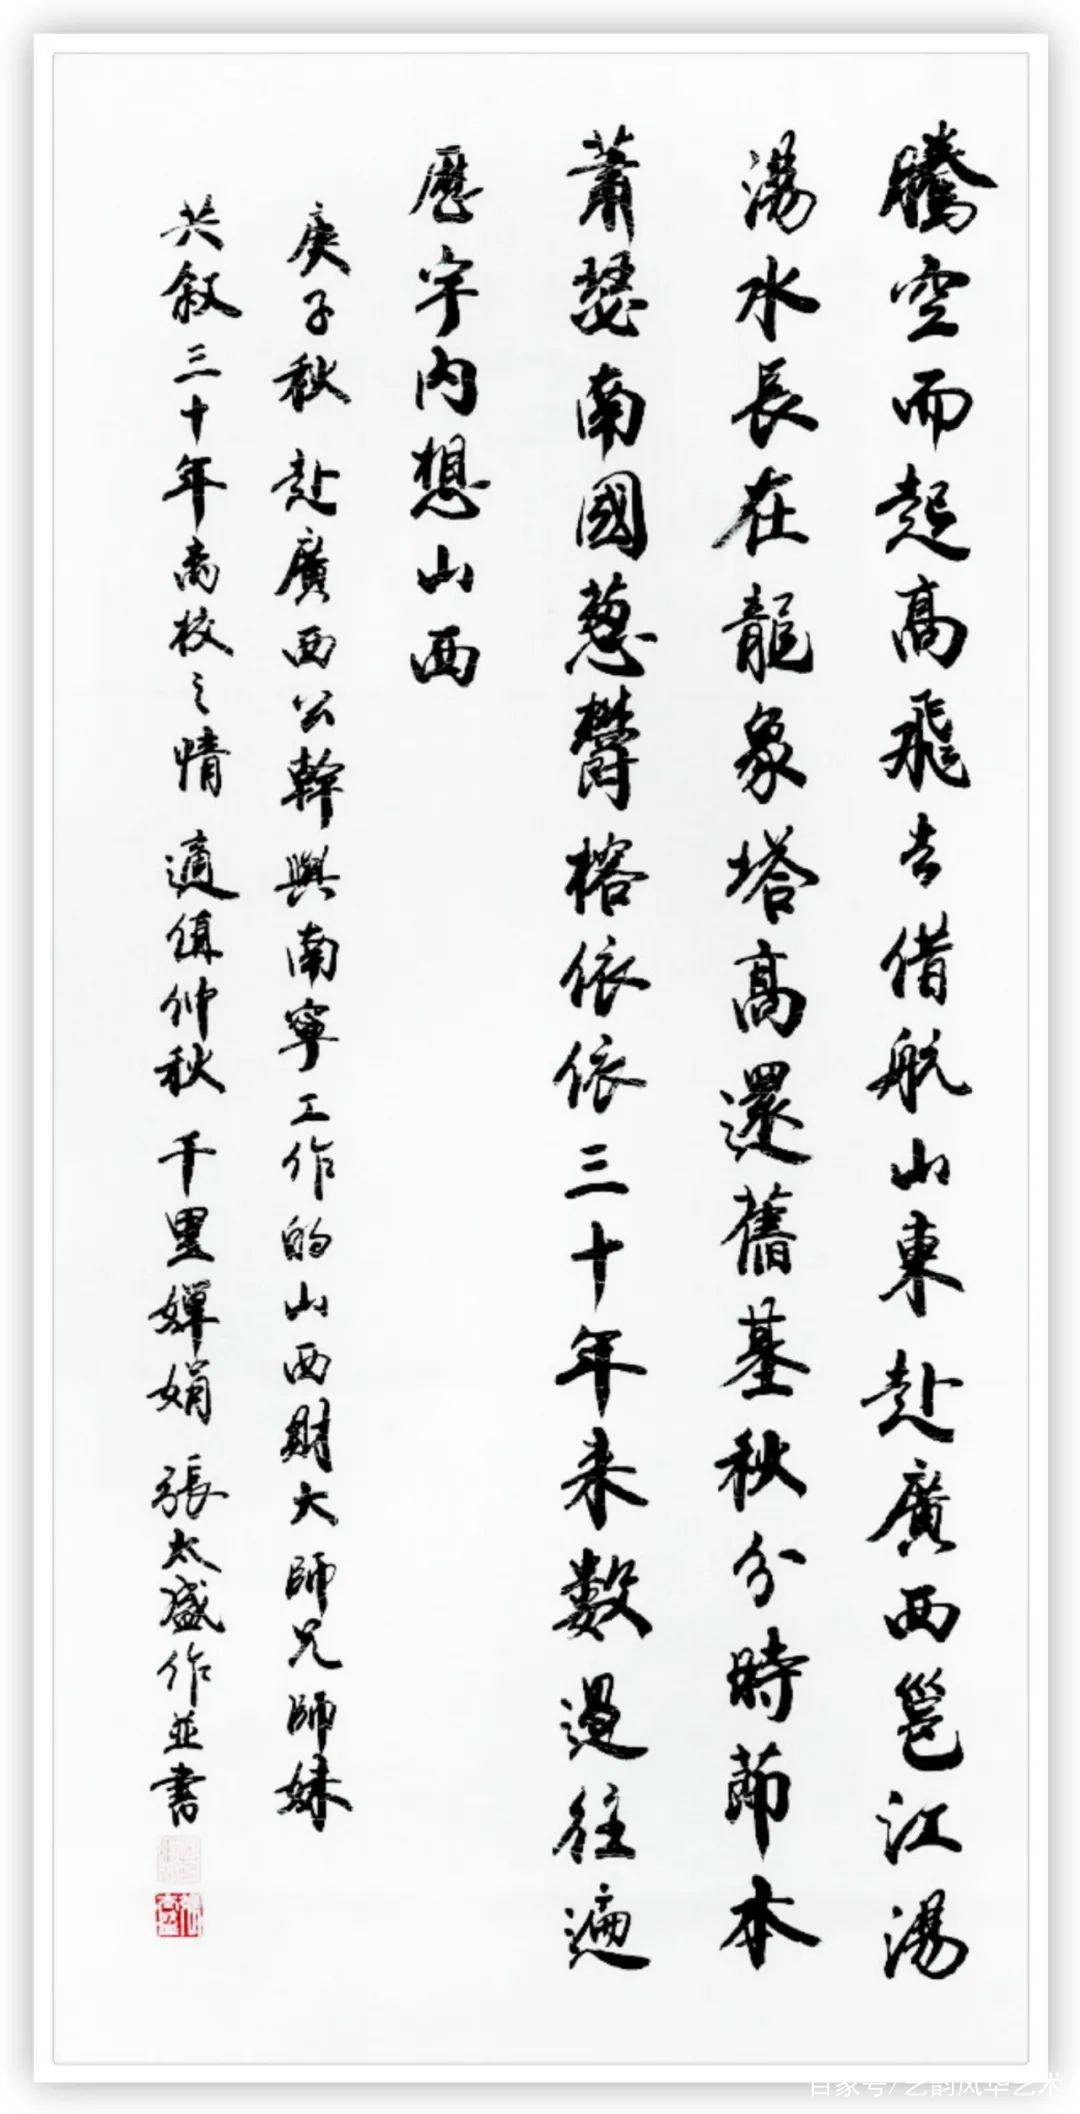 騰空而起高飛去借航山東赴廣西邕江湯
湯水長在龍象塔高還舊基秋分時節本
蕭瑟南國蔥欝榕依依三十年来數過往遍
歷宇内想山西
庚子秋赴廣西公幹與南寧工作的山西財大師兄師妹
共敘三十年离校之情適值仲秋千里嬋娟張太盛作並書
百家号/艺韵风华艺术